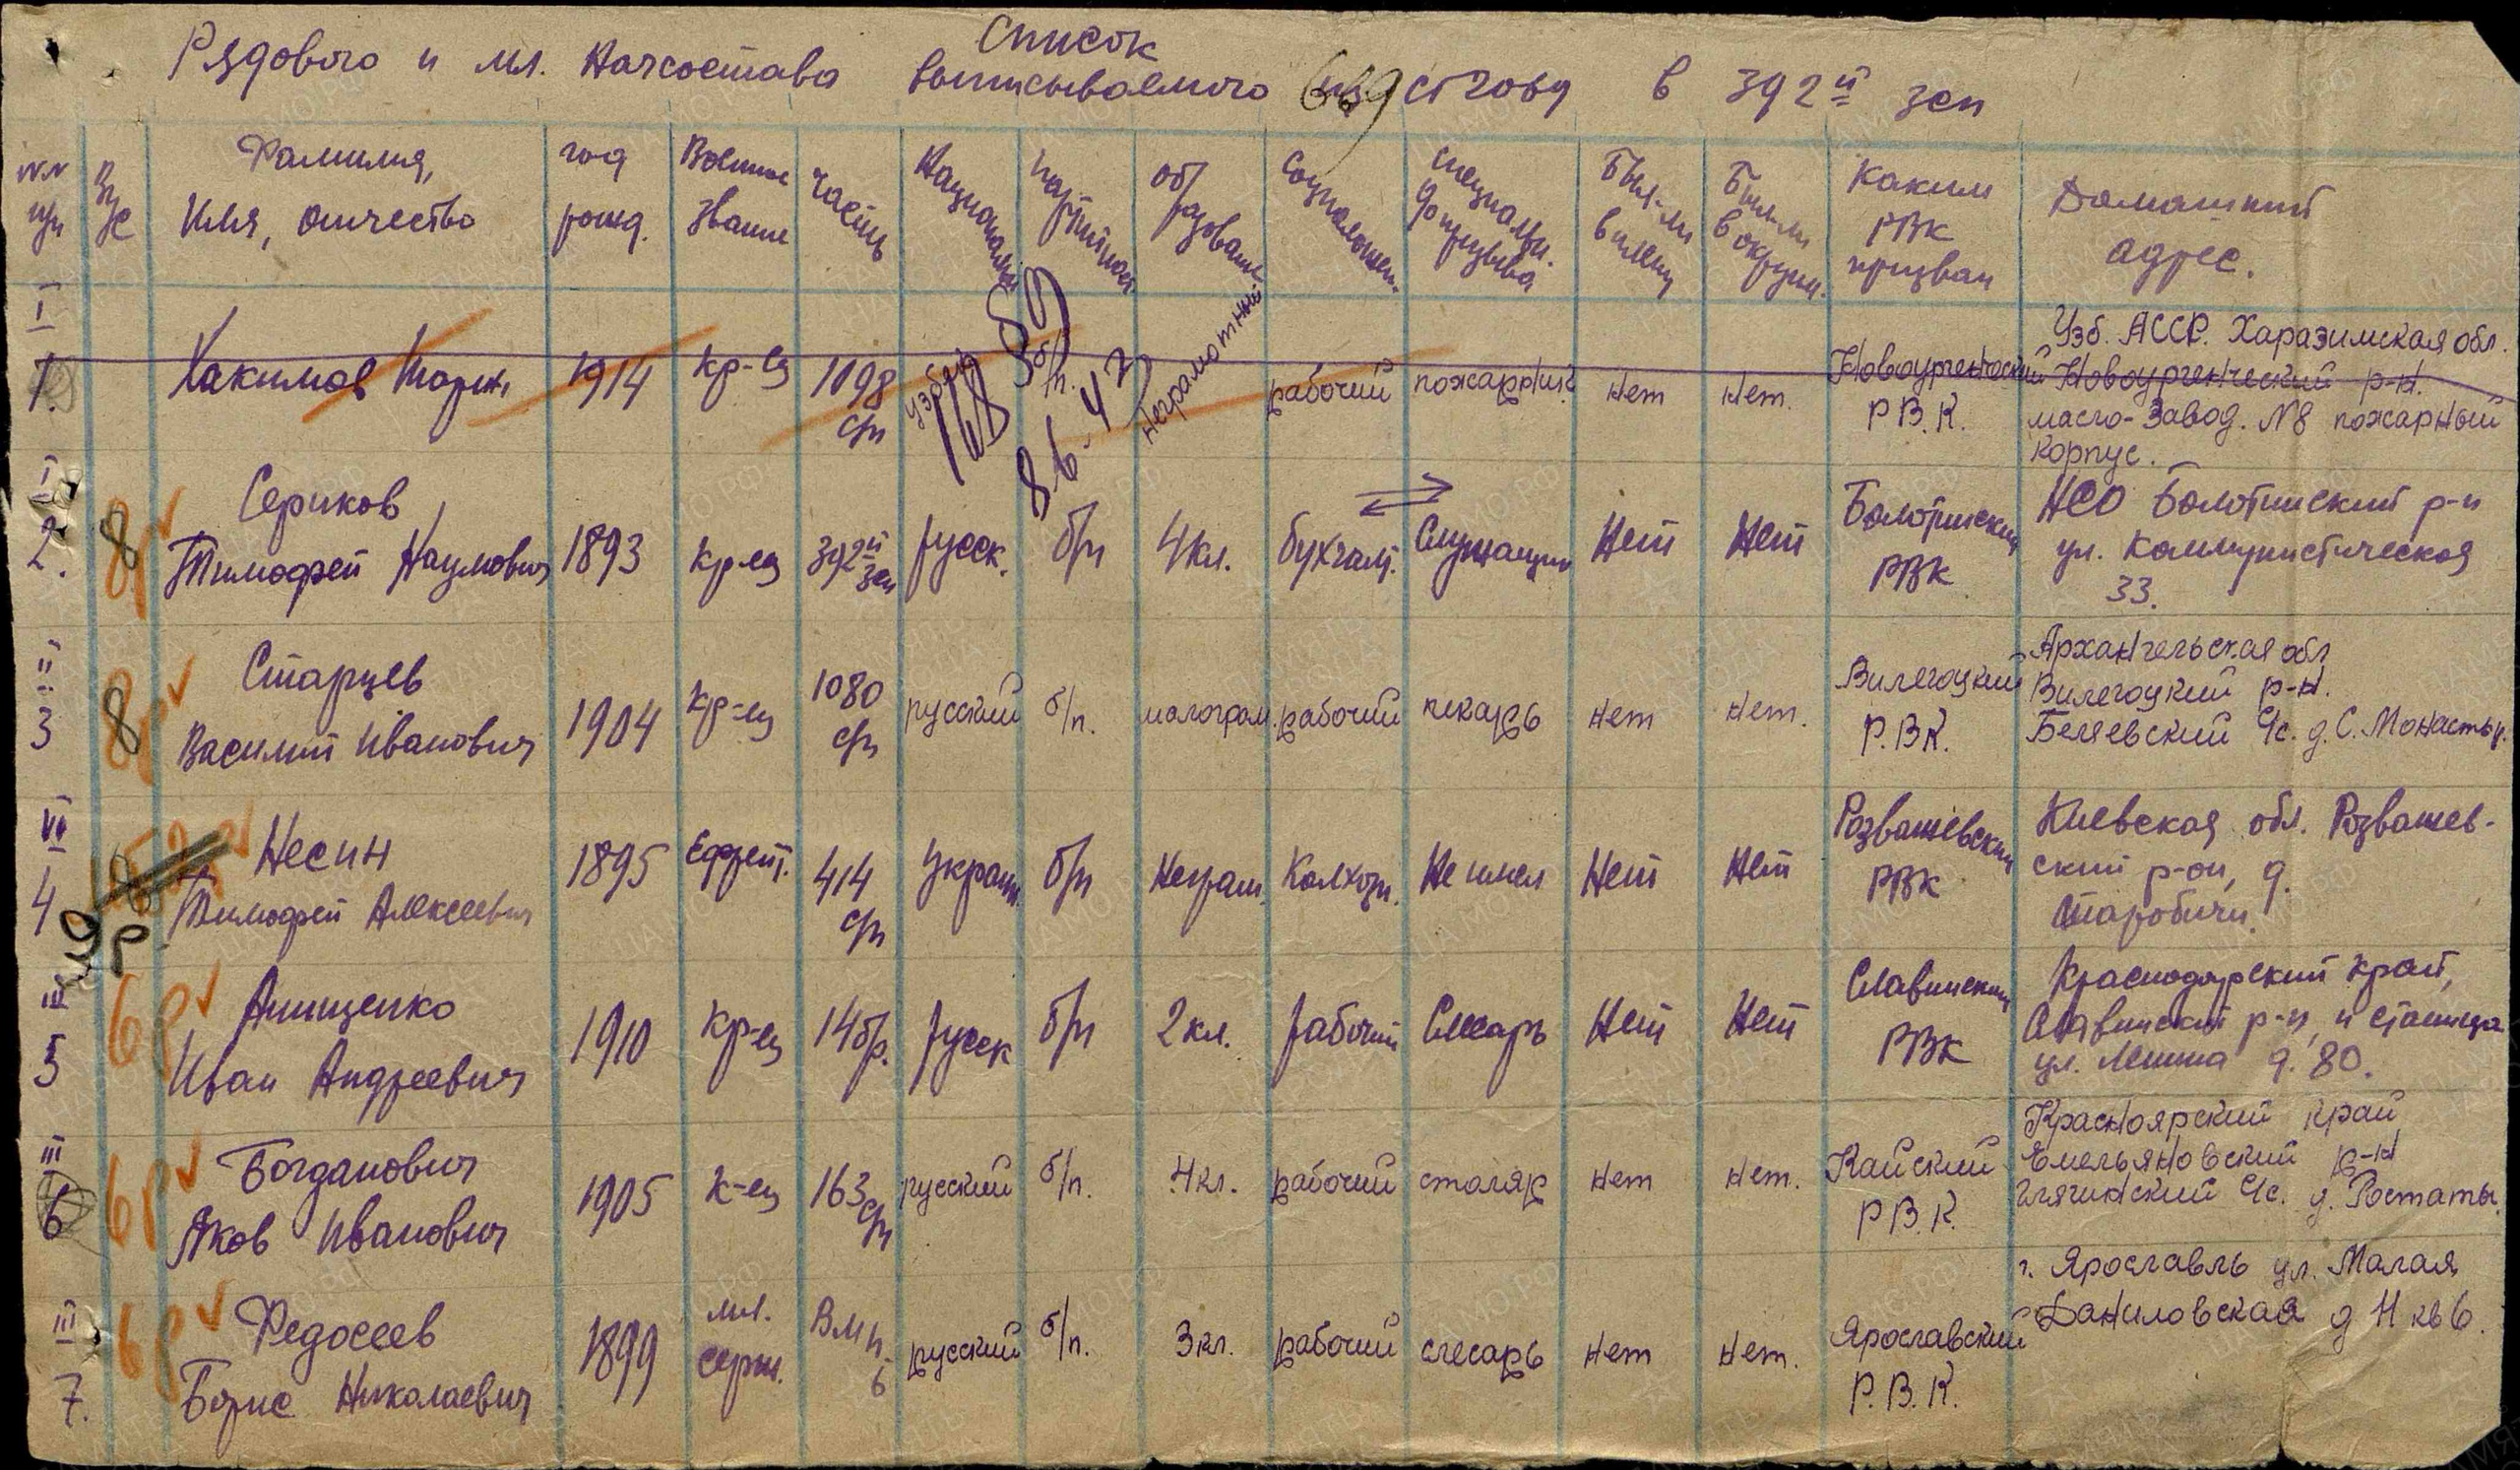 Список
Рядового и мл. Начсостава выписываемого из 669 ст 2069 в 392й зсп
NN пп
Фамилия, Имя, отчество
год рожд.
Военное звание
часть
Национальн.
партийность
образование
Социальн.
специальн. до призыва
Был-ли в плену
Был-ли в окруж.
Каким РВК призван
Домашний адрес.
I
1. Хакимов 1914 кр-ец 1098 сп узбек б/п. неграмотный рабочий пожарник нет нет. Новоургенческий Р.В.К. Узб. АССР. Харазимская обл.
Новоургенческий р-н.
масло-завод. N8 пожарный
корпус.
8.6-43
I
2. 8 8р Сериков
Тимофей Наумович 1893 кр-ец 392й зсп русск. б/п 4 кл. бухгалт. Служащий Нет Нет Болотнинский РВК НСО Болотнинский р-н
ул. Коммунистическая
33.
II
3 8 8р Старцев
Василий Иванович 1904 кр-ец 1080 сп русский б/п. малограм. рабочий пекарь нет нет. Вилегоцкий Р.В.К. Архангельская обл
Вилегоцкий р-н.
Беляевский с/с. д. С. Монастыр.
VI
4 10 р Несин
Тимофей Алексеевич 1895 Ефрейт. 414 сп украин. б/п Неграм. Колхозн. Не имел Нет Нет Розважевский РВК Киевская обл. Розважев-
ский р-он, д.
Старобичи.
III
5 6р Анищенко
Иван Андреевич 1910 Кр-ец 14 бр. русск б/п 2 кл. рабочий Слесарь Нет Нет Славинский РВК Краснодарский край,
Славинский р-н, и станица
ул. Ленина д. 80.
III
6 6р Богданович
Яков Иванович 1905 к-ец 163 сп русский б/п. 4 кл. рабочий столяр нет нет. Кайский Р.В.К. Красноярский край
Емельяновский р-н
с/с. д. Ростаты.
III
7. 6р Федосеев
Борис Николаевич 1899 мл. серж. русский б/п. 3 кл. рабочий слесарь нет нет. Ярославский Р.В.К. г. Ярославль ул. Малая
Даниловская д 11 кв 6.